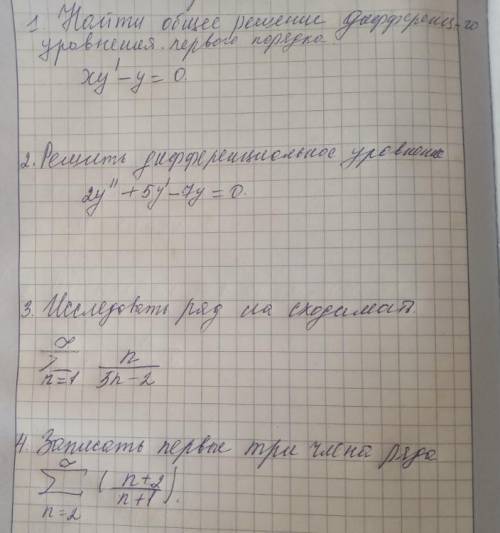 1. Найти общее решение дифференц-го
уравнения первого порядка
xy' - y = 0.
2. Решить дифференциальное уравнение
2y'' + 5y' - 7y = 0.
3. Исследовать ряд на сходимост
∞
∑ n/(3n-2)
n=1
4. Записать первые три члена ряда
∞
∑ ((n+2)/(n+1)).
n=2